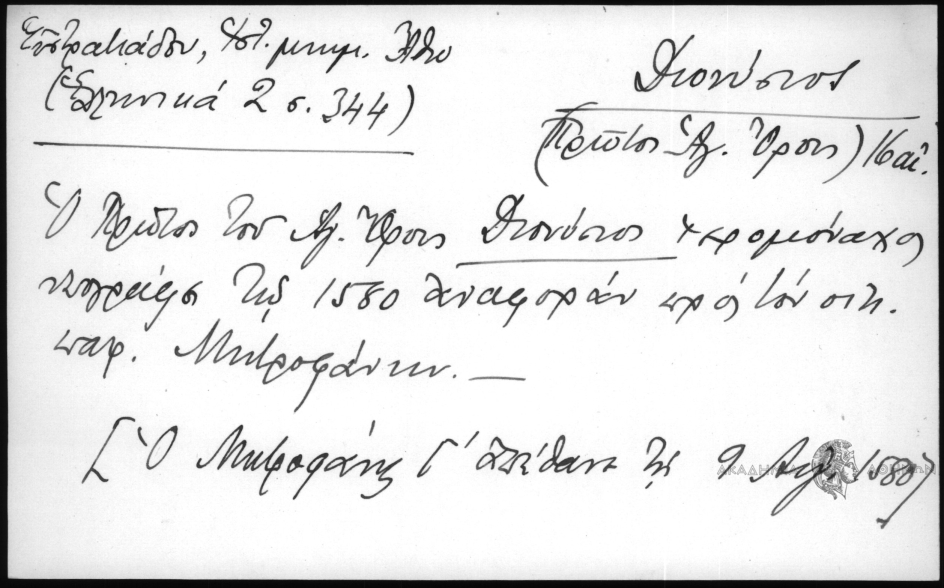 Εὐστρατιάδου, Ἱστ. μνημ. Ἄθω
(Ἑλληνικά 2 σ. 344)
Διονύσιος
(Πρῶτος Ἁγ. Ὄρους) 16 αἰ.
Ὁ Πρῶτος τοῦ Ἁγ. Ὄρους Διονύσιος ἱερομόναχος
ὑπογράφει τῷ 1580 ἀναφορὰν πρὸς τὸν οἰκ.
πατρ. Μητροφάνην. —
[Ὁ Μητροφάνης Γ΄ ἀπέθανε τῇ 9 Αὐγ. 1580]
ΑΚΑΔΗΜΙΑ ΑΘΗΝΩΝ